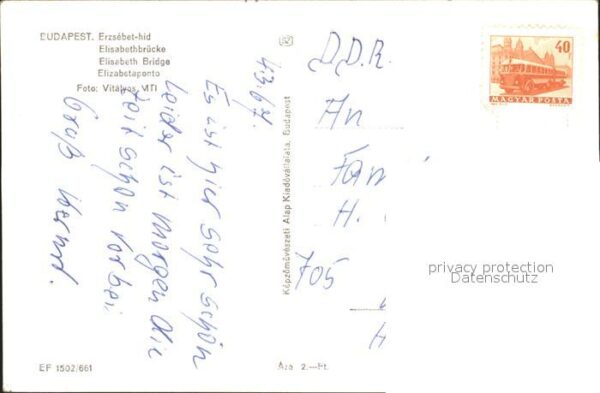 BUDAPEST. Erzsébet-híd
Elisabethbrücke
Elisabeth Bridge
Elizabetaponto
Foto: Vitályos, MTI
4.3.67.
Es ist hier sehr schön
leider ist morgen die
Zeit schon vorbei.
Gruß Bernd.
Képzőművészeti Alap Kiadóvállalata, Budapest
D.D.R.
An
Fam
H.
705
H
40
MAGYAR POSTA
privacy protection
Datenschutz
EF 1502/661
Ára 2.—Ft.